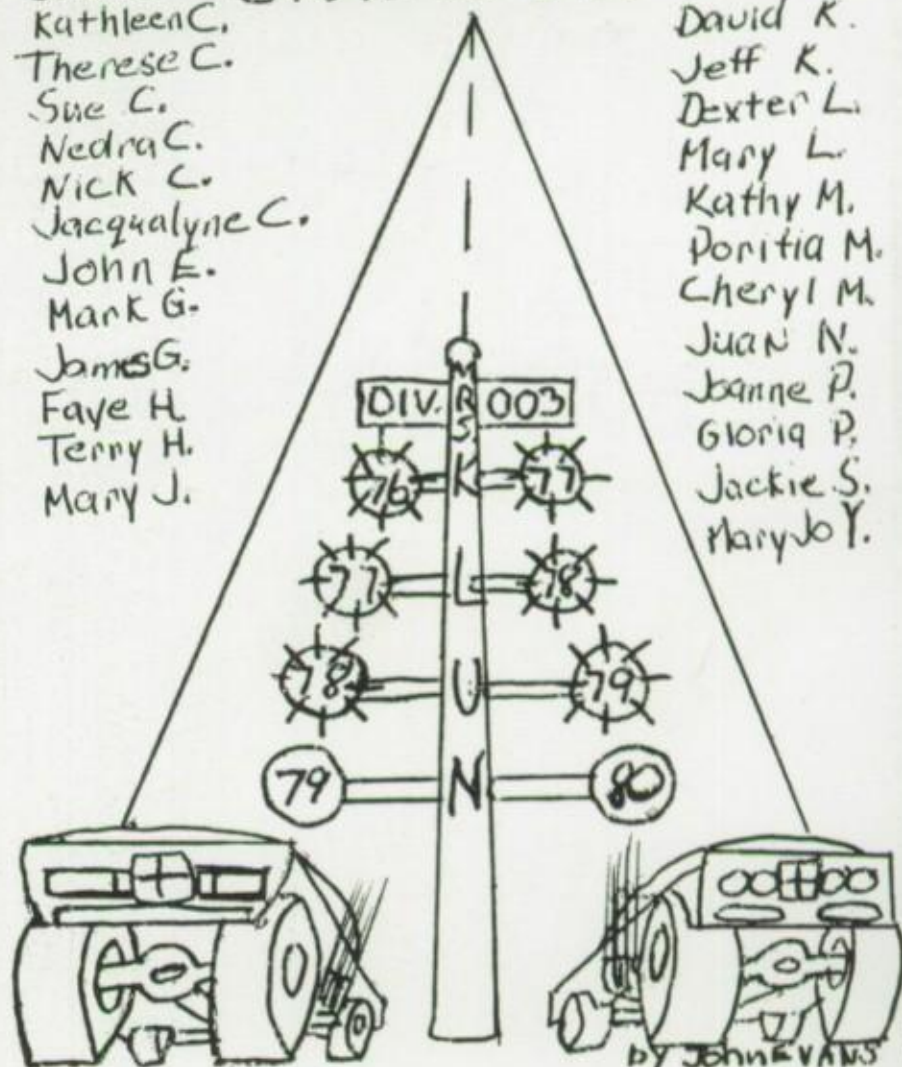 Kathleen C.
Therese C.
Sue C.
Nedra C.
Nick C.
Jacqualyne C.
John E.
Mark G.
James G.
Faye H.
Terry H.
Mary J.
David K.
Jeff K.
Dexter L.
Mary L.
Kathy M.
Poritia M.
Cheryl M.
Juan N.
Joanne P.
Gloria P.
Jackie S.
Mary Jo Y.
MRS KLUN
DIV. 003
76 77
77 78
78 79
79 80
by John EVANS